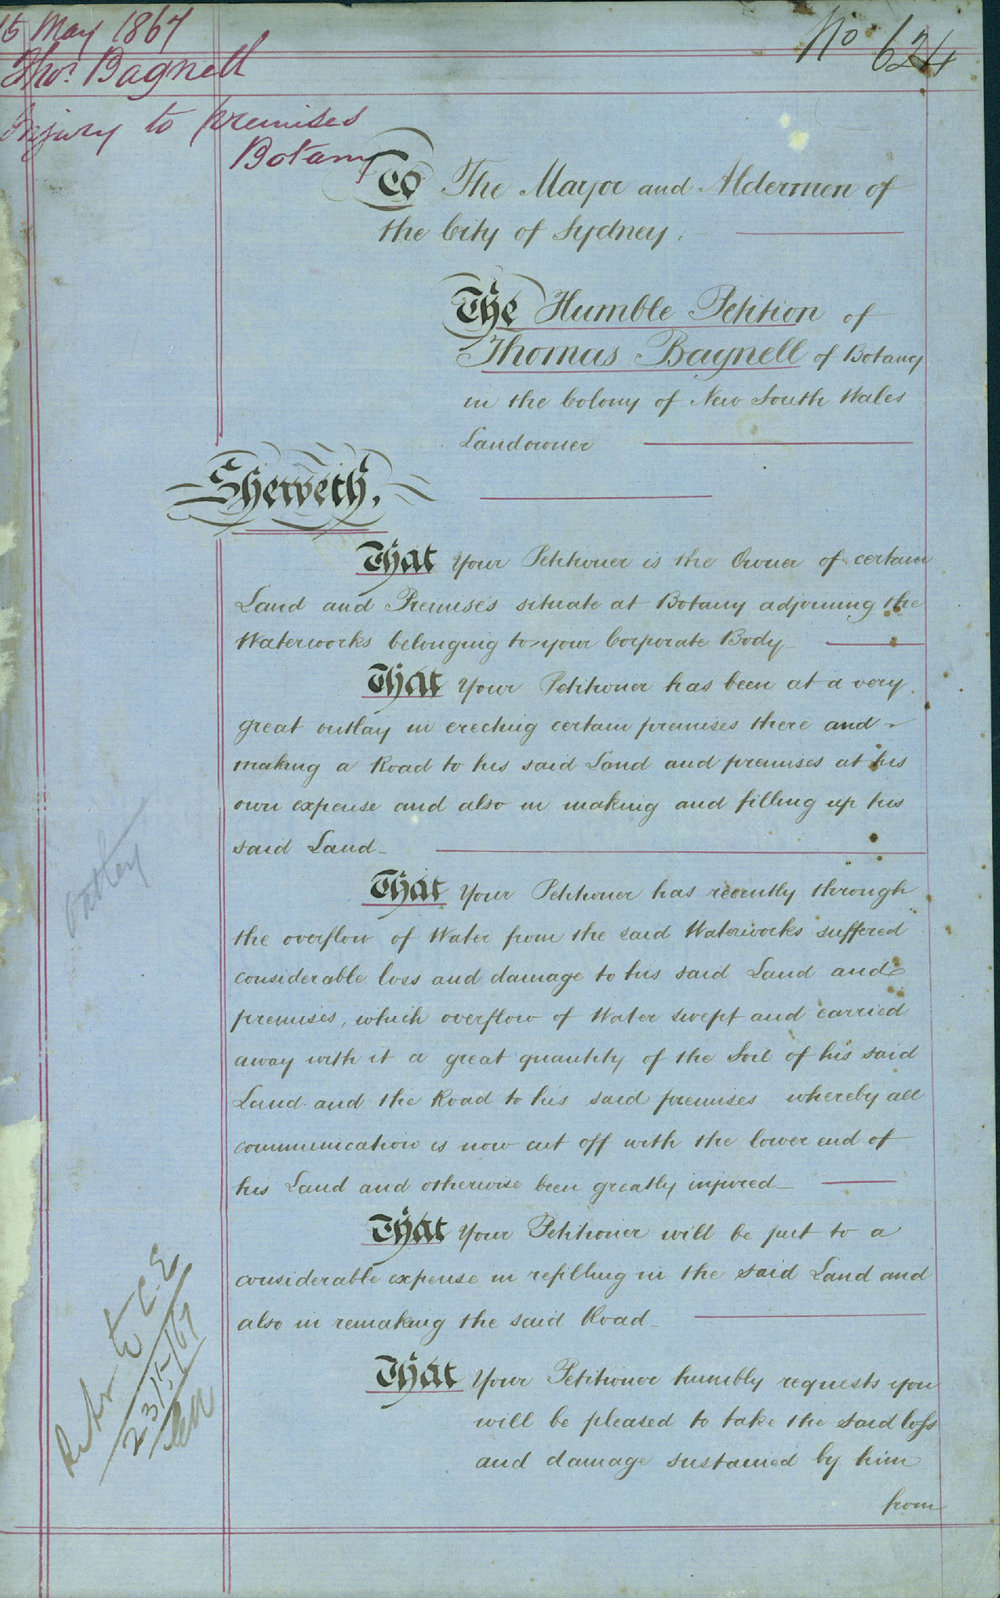 15 May 1867
No 624
Thos. Bagnell
Injury to premises
Botany
To The Mayor and Aldermen of
the City of Sydney.
The Humble Petition of
Thomas Bagnell of Botany
in the Colony of New South Wales
Landowner
Sheweth,
That Your Petitioner is the Owner of certain
Land and Premises situate at Botany adjoining the
Waterworks belonging to your Corporate Body
That Your Petitioner has been at a very
great outlay in erecting certain premises there and
making a Road to his said Land and premises at his
own expense and also in making and filling up his
said Land
That Your Petitioner has recently through
the overflow of Water from the said Waterworks suffered
considerable loss and damage to his said Land and
premises, which overflow of Water swept and carried
away with it a great quantity of the Soil of his said
Land and the Road to his said premises whereby all
communication is now cut off with the lower end of
his Land and otherwise been greatly injured
That Your Petitioner will be put to a
considerable expense in refilling in the said Land and
also in remaking the said Road
That Your Petitioner humbly requests you
will be pleased to take the said loss
and damage sustained by him
from
to C.E
23/5/67